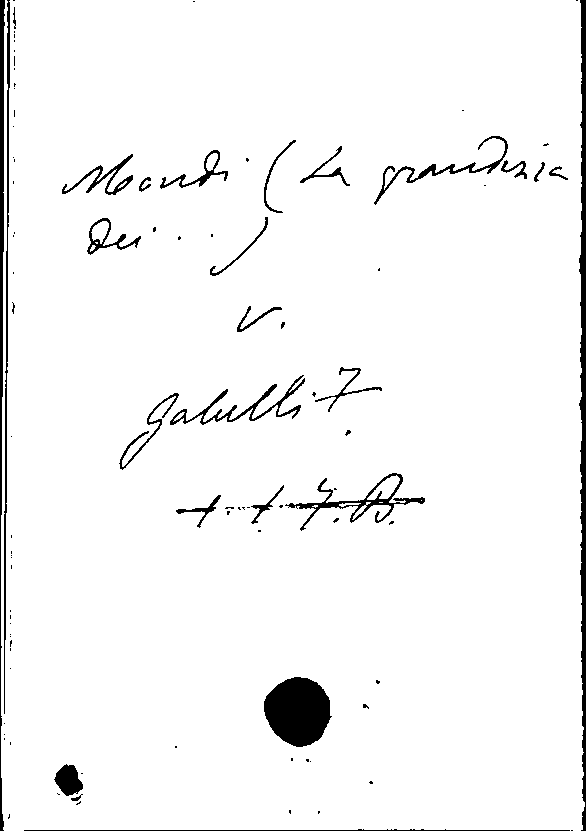 Mondi (La grandezza
dei . . .)
v.
Gabelli F.
+ . + 7. B.